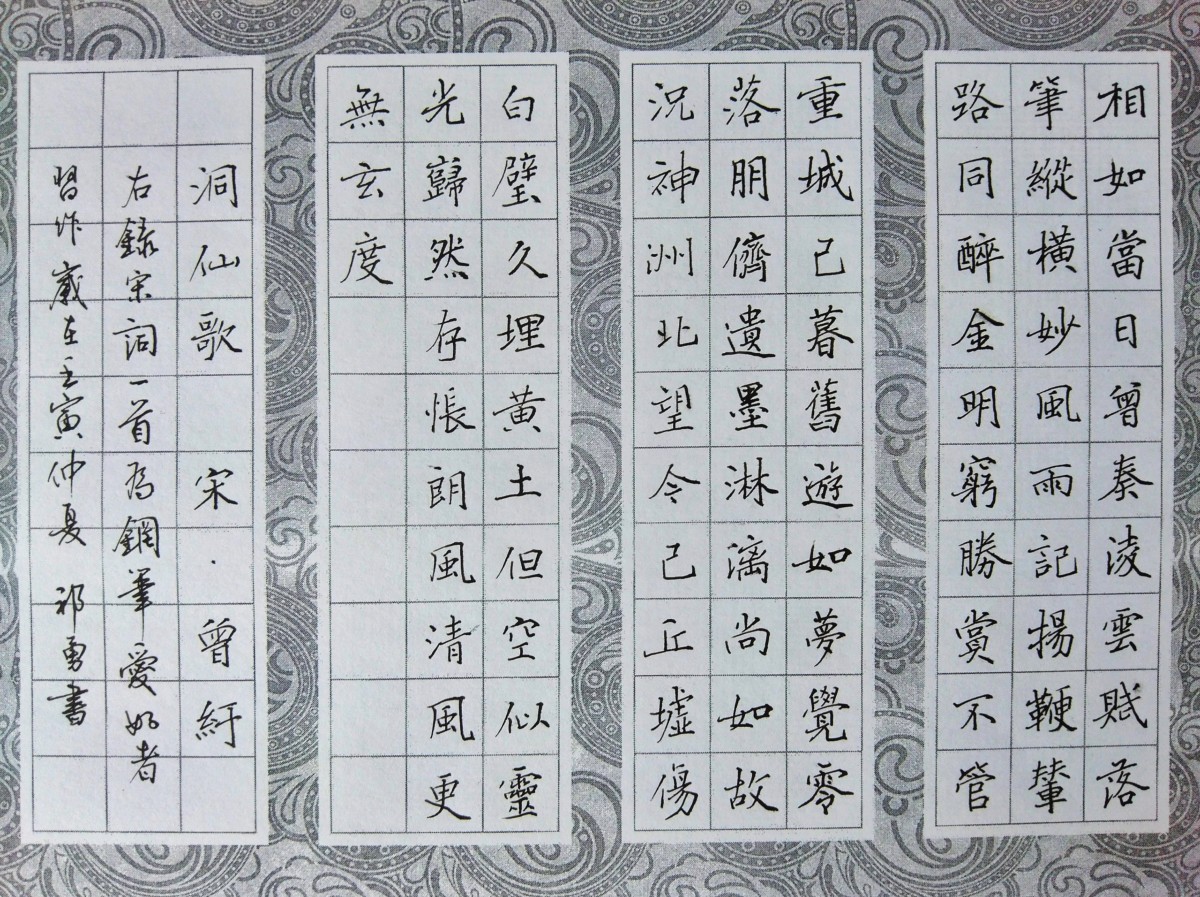 相如當日曾奏淩雲賦落
筆縱橫妙風雨記揚鞭輦
路同醉金明窮勝賞不管
重城已暮舊遊如夢覺零
落朋儕遺墨淋漓尚如故
況神洲北望令己丘墟傷
白璧久埋黃土但空似靈
光巋然存悵朗風清風更
無玄度
洞仙歌 宋·曾紆
右錄宋詞一首為鋼筆愛好者
習作歲在壬寅仲夏 祁勇書